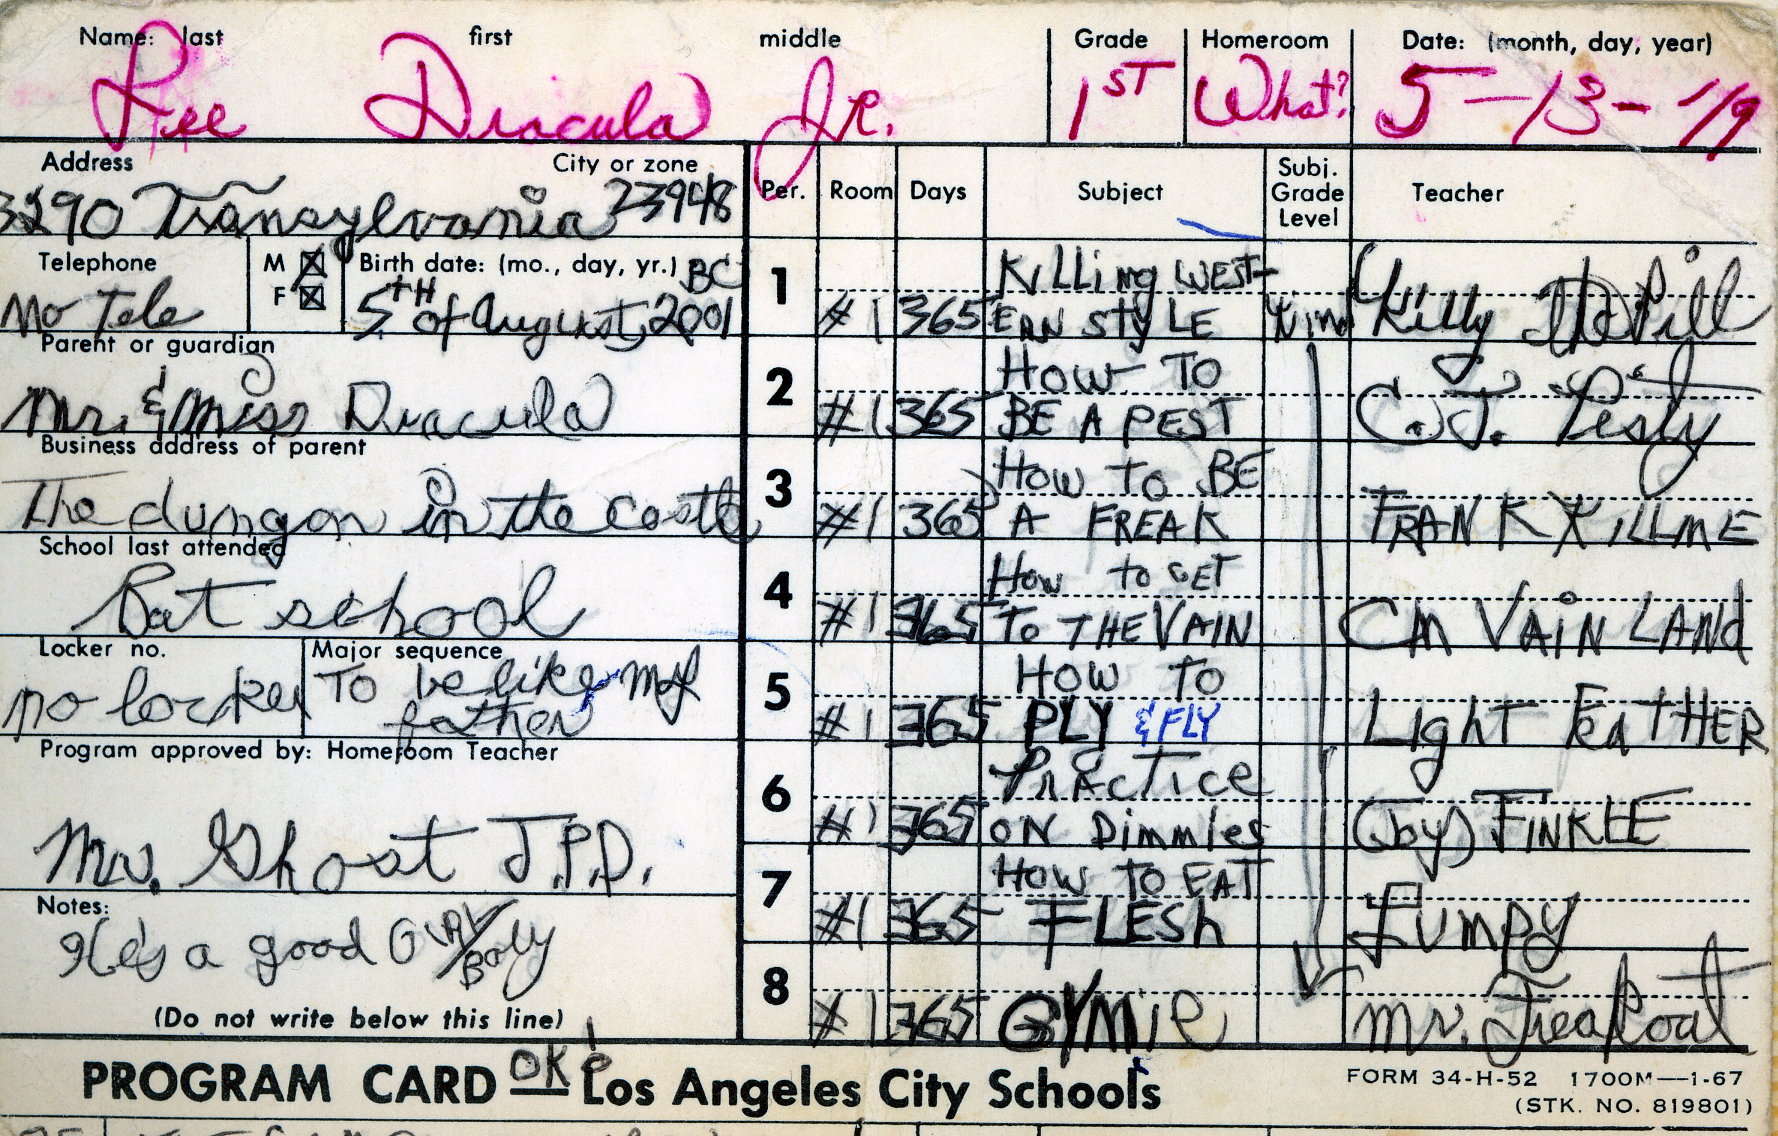 Name: last first middle Grade Homeroom Date: (month, day, year)
Lee Dracula Jr. 1ST What? 5-13-
Address City or zone
3290 Transylvania 23948
Telephone M F Birth date: (mo., day, yr.) BC
no Tele 5TH of August, 2001
Parent or guardian
mr. & miss Dracula
Business address of parent
The dungon in the castle
School last attended
Bat school
Locker no. Major sequence
no locker To be like my
father
Program approved by: Homeroom Teacher
Mr. Ghost J.P.D.
Notes:
He's a good
Body
(Do not write below this line)
Per. Room Days Subject Subj. Grade Level Teacher
1 KiLLing WEST-
#1 365 ERN STYLE Kind Killy
2 HOW TO
#1 365 BE A PEST C.J. Pesty
3 HOW TO BE
#1 365 A FREAK FRANK KILLME
4 HOW to GET
#1 365 To THE VAIN CM VAiN LANd
5 HOW TO
#1 365 PLY & FLY LIghT FEaTHER
6 PrAcTice
#1 365 ON Dimmies (Joy) FINKLE
7 HOW TO EAT
#1 365 FLESh Fumpy
8
#1 365 GYMie mr.
PROGRAM CARD OK Los Angeles City Schools
FORM 34-H-52 1700M—1-67
(STK. NO. 819801)